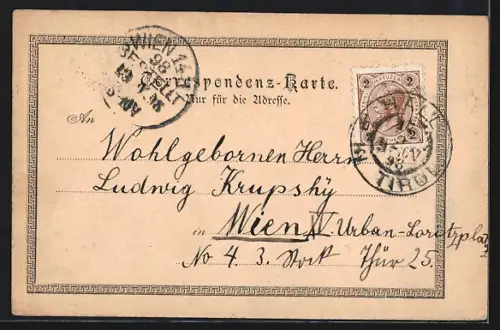 WIEN 14
98
BESTELLT
Correspondenz-Karte.
Nur für die Adresse.
2
2
HALL
98
TIROL
An
Wohlgebornen Herrn
Ludwig Krupshý
in Wien Urban-Loritzplatz
No 4. 3. Stock Thür 25.